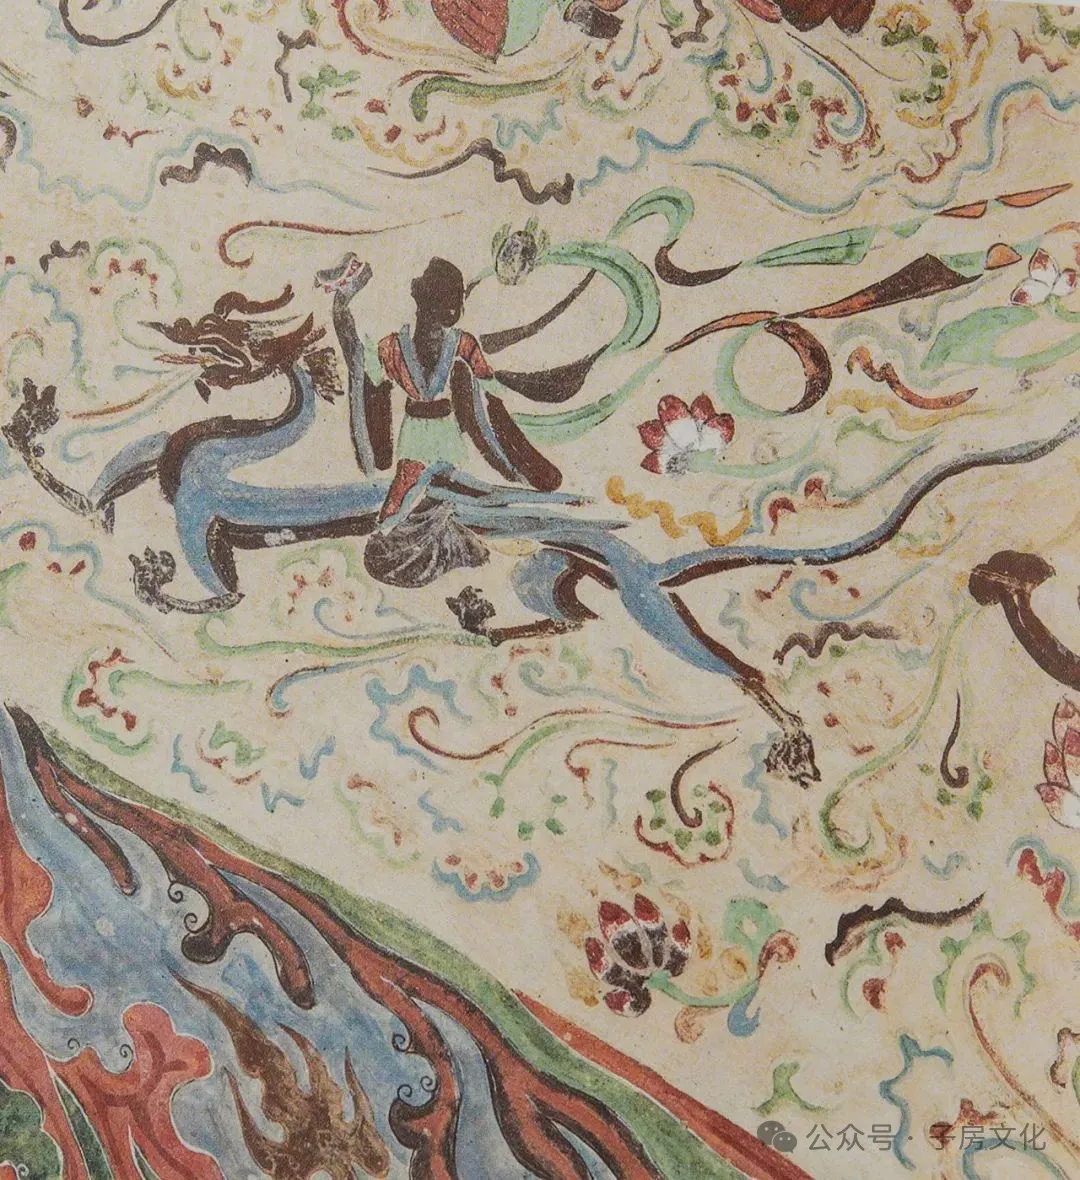 公众号 · 子房文化